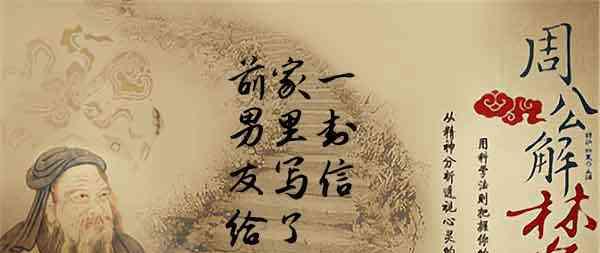 前男友给
家里写了
一封信
周公解梦
用科学法则把握你的
从精神分析透视心灵的